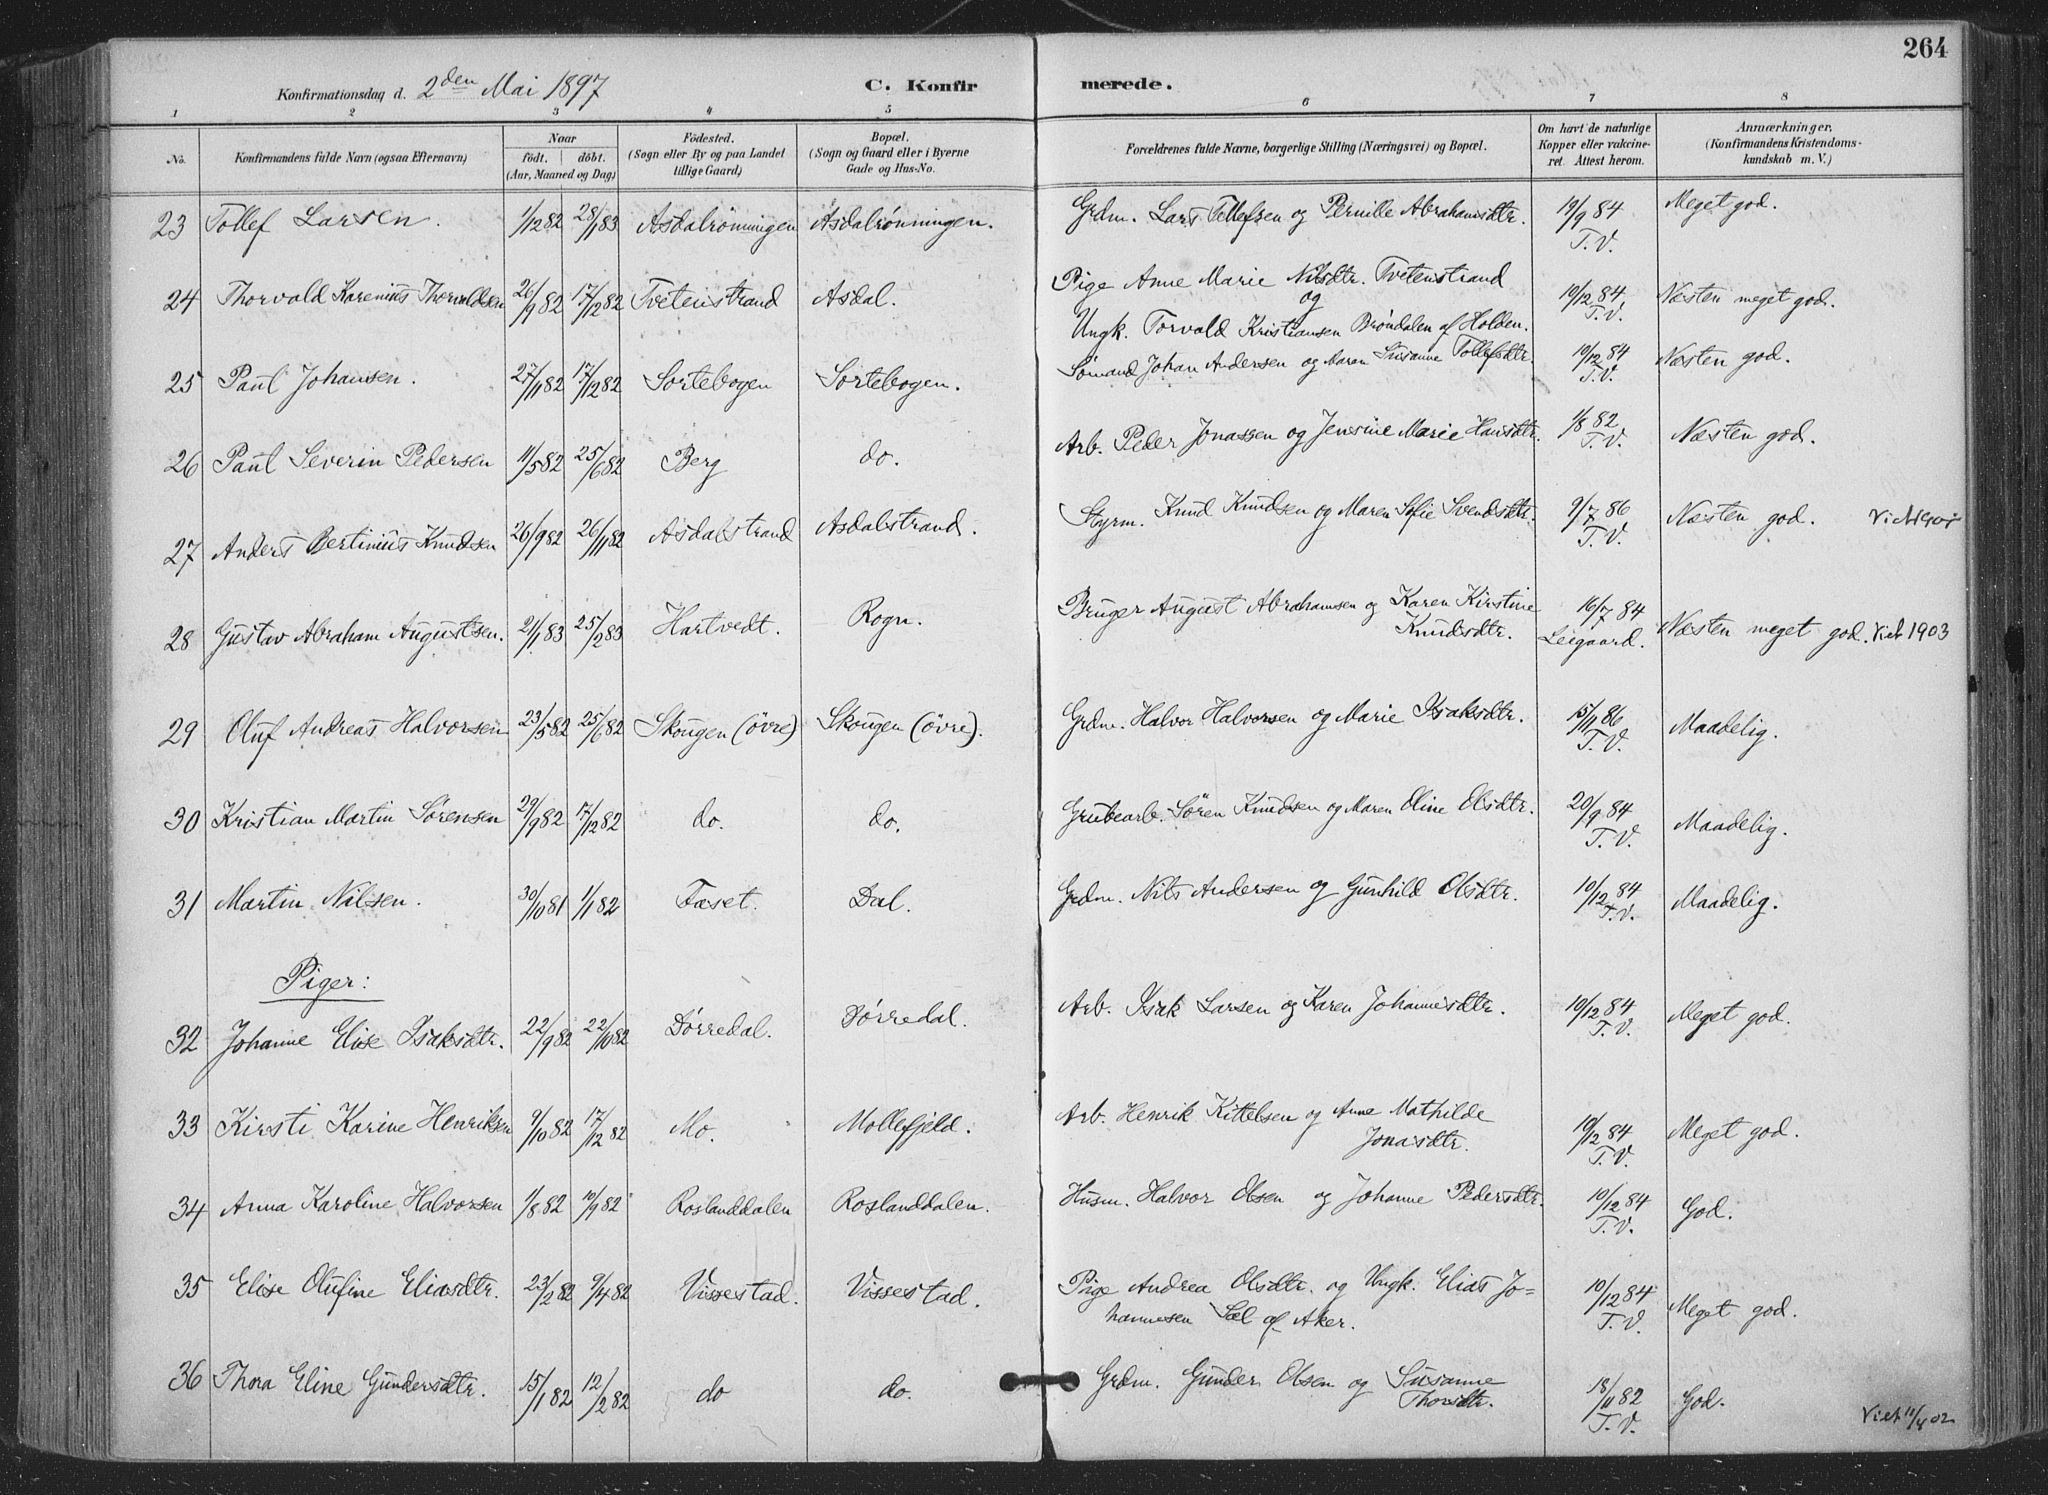 264
Konfirmationsdag d. 2den Mai 1897 C. Konfirmerede.
1 2 3 4 5 6 7 8
No. Konfirmandens fulde Navn (ogsaa Efternavn) Naar født. døbt. (Aar, Maaned og Dag) Fødested. (Sogn eller By og paa Landet tillige Gaard) Bopæl. (Sogn og Gaard eller i Byerne Gade og Hus-No. Forældrenes fulde Navne, borgerlige Stilling (Næringsvei) og Bopæl. Om havt de naturlige Kopper eller vaccineret. Attest herom. Anmærkninger. (Konfirmandens Kristendomskundskab m. V.)
23 Tollef Larsen. 1/12 82 28/1 83 Asdalrönningen Asdalrönningen. Grdm. Lars Tellefsen og Pernille Abrahamsdtr. 19/9 84 T.V. Meget god.
24 Thorvald Karenius Thorvaldsen 26/9 82 17/12 82 Tvetenstrand Asdal. Pige Anne Marie Nilsdtr. Tvetenstrand og
Ungk. Torvald Kristiansen Bröndalen af Holden. 10/12 84 T.V. Næsten meget god.
25 Paul Johansen. 27/11 82 17/12 82 Sortebogen Sortebogen. Sömand Johan Andersen og Maren Susanne Tollefsdtr. 10/12 84 T.V. Næsten god.
26 Paul Severin Pedersen 11/5 82 25/6 82 Berg do. Arb. Peder Jonassen og Jensine Marie Hansdtr. 1/8 82 T.V. Næsten god.
27 Anders Bertinius Knudsen 26/9 82 26/11 82 Asdalstrand Asdalstrand. Styrm. Knud Knudsen og Maren Sofie Svendsdtr. 9/7 86 T.V. Næsten god.
28 Gustav Abraham Augustsen. 21/1 83 25/2 83 Hartvedt. Rogn. Bruger August Abrahamsen og Karen Kirstine
Knudsdtr. 16/7 84 Leigaard. Næsten meget god. Viet 1903
29 Oluf Andreas Halvorsen 23/5 82 25/6 82 Skougen (övre) Skougen (övre). Grdm. Halvor Halvorsen og Marie Isaksdtr. 15/11 86 T.V. Maadelig.
30 Kristian Martin Sörensen 29/9 82 17/12 82 do. do. Grubearb. Sören Knudsen og Maren Oline Olsdtr. 20/9 84 T.V. Maadelig.
31 Martin Nilsen. 30/10 81 1/1 82 Fæset. Dal. Grdm. Nils Andersen og Gunhild Olsdtr. 10/12 84 T.V. Maadelig.
Piger:
32 Johanne Elise Isaksdtr. 22/9 82 22/10 82 Dörredal. Dörredal. Arb. Isak Larsen og Karen Johannesdtr. 10/12 84 T.V. Meget god.
33 Kirsti Karine Henriksen 9/10 82 17/12 82 Mo. Mollefjeld. Arb. Henrik Kittelsen og Anne Mathilde
Jonasdtr. 10/12 84 T.V. Meget god.
34 Anna Karoline Halvorsen 1/8 82 10/9 82 Roslanddalen Roslanddalen. Husm. Halvor Olsen og Johanne Pedersdtr. 10/12 84 T.V. God.
35 Elise Olufine Eliasdtr. 23/2 82 9/4 82 Vissestad. Vissestad. Pige Andrea Olsdtr. og Ungk. Elias Jo-
hannesen Sæl af Aker. 10/12 84 T.V. Meget god.
36 Thora Eline Gundersdtr. 15/1 82 12/2 82 do do. Grdm. Gunder Olsen og Susanne
Thorsdtr. 18/11 82 T.V. God. Viet 11/8 02